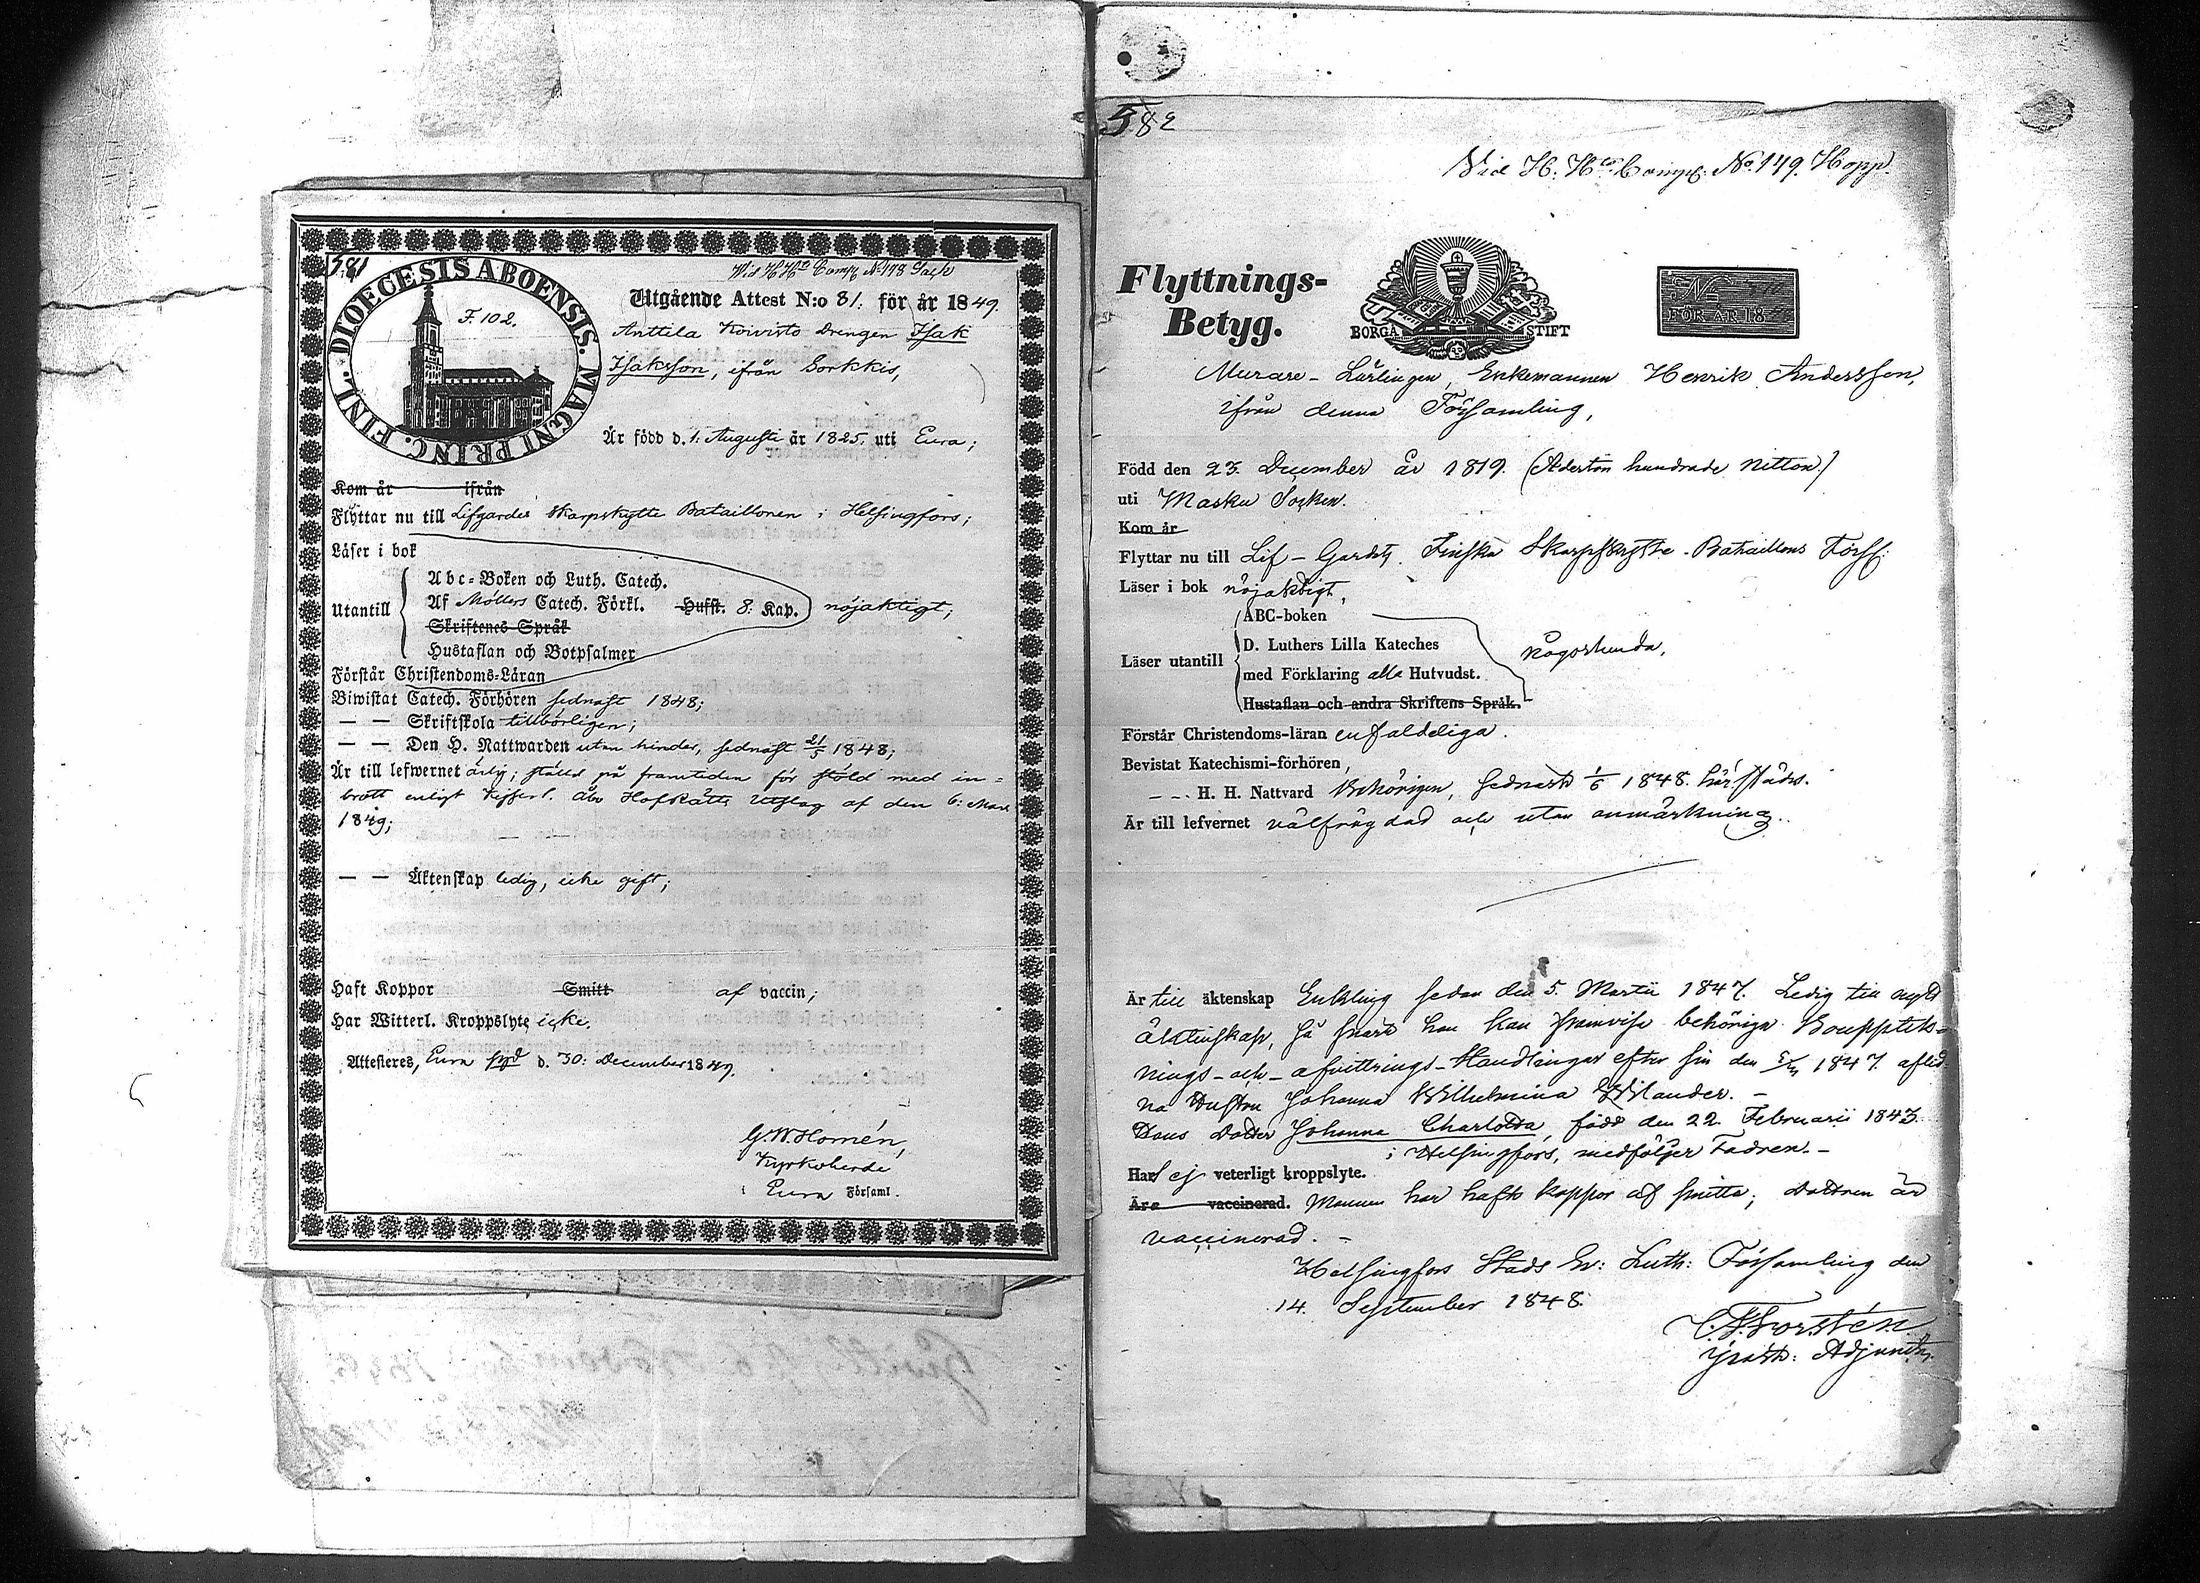 581
DIOECESIS ABOENSIS. MAGNI PRINC. FINL.
F. 102.
Vid H. H:s Comp. N:178
Utgående Attest N:o 81. för år 1849.
Anttila Koivisto Drengen Isak
Isaksson, ifrån Sorkkis,
Är född d. 1. Augusti år 1825. uti Eura;
Kom år ifrån
Flyttar nu till Lifgardes Skarpskytte Bataillonen i Helsingfors;
Läser i bok
Abc-Boken och Luth. Catech.
Utantill Af Möllers Catech. Förkl. Hufst. 8. Kap. nöjaktigt;
Skriftenes Språk
Hustaflan och Botpsalmer
Förstår Christendoms-Läran
Biwistat Catech. Förhören sednast 1848;
— — Skriftskola tillbörligen;
— — Den H. Nattwarden utan hinder, sednast 21/5 1848;
Är till lefwernet ärlig; ställd på framtiden för stöld med in-
brott enligt Kejserl. Åbo HofRätts Utslag af den 6: Mars
1849;
— — Äktenskap ledig, icke gift;
Haft Koppor Smitt af vaccin;
Har Witterl. Kroppslyte icke.
Attesteres, Eura d. 30: December 1849.
G. W. Homén,
Kyrkoherde
i Eura Församl.
582
Vid H. H:s Comp: No 149. Hopp.
Flyttnings-
Betyg.
BORGÅ STIFT
No
FÖR ÅR 18
Murare-Lärlingen, Enkemannen Henrik Andersson,
ifrån denna Församling,
Född den 23. December år 1819. (Aderton hundrade nitton.)
uti Masku Socken.
Kom år
Flyttar nu till Lif-Gardets Finska Skarpskytte-Bataillons Förs:
Läser i bok nöjaktigt,
ABC-boken
D. Luthers Lilla Kateches
Läser utantill någorlunda,
med Förklaring alla Hufvudst.
Hustaflan och andra Skriftens Språk.
Förstår Christendoms-läran enfaldeliga.
Bevistat Katechismi-förhören,
— — H. H. Nattvard Behörigen, sednast 1/6 1848. härstädes.
Är till lefvernet välfrägdad och utan anmärkning.
Är till äktenskap Enkling sedan den 5. Martii 1847. Ledig till nytt
äktenskap, så snart han kan framvise behöriga Boupptek-
nings-och-afvittrings-Handlingar efter sin den 5/3 1847. aflid-
na Hustru Johanna Wilhelmina Wilander. —
Hans Dotter Johanna Charlotta, född den 22. Februarii 1843.
i Helsingfors, medföljer Fadren. —
Har ej veterligt kroppslyte.
Äre vaccinerad. Mannen har haft koppor af smitta; dottren är
vaccinerad. —
Helsingfors Stads Ev: Luth: Församling den
14. September 1848.
Forstén
Adjunct.